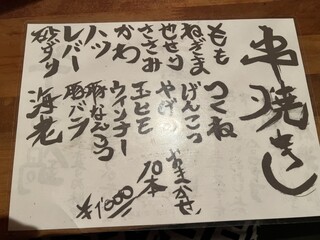 串焼き
もも
ねぎま
せせり
ささみ
かわ
ハツ
レバー
砂ずり
つくね
げんこつ
やげん
玉ヒモ
ウインナー
豚なんこつ
豚バラ
海老
おまかせ
10本
¥1,000